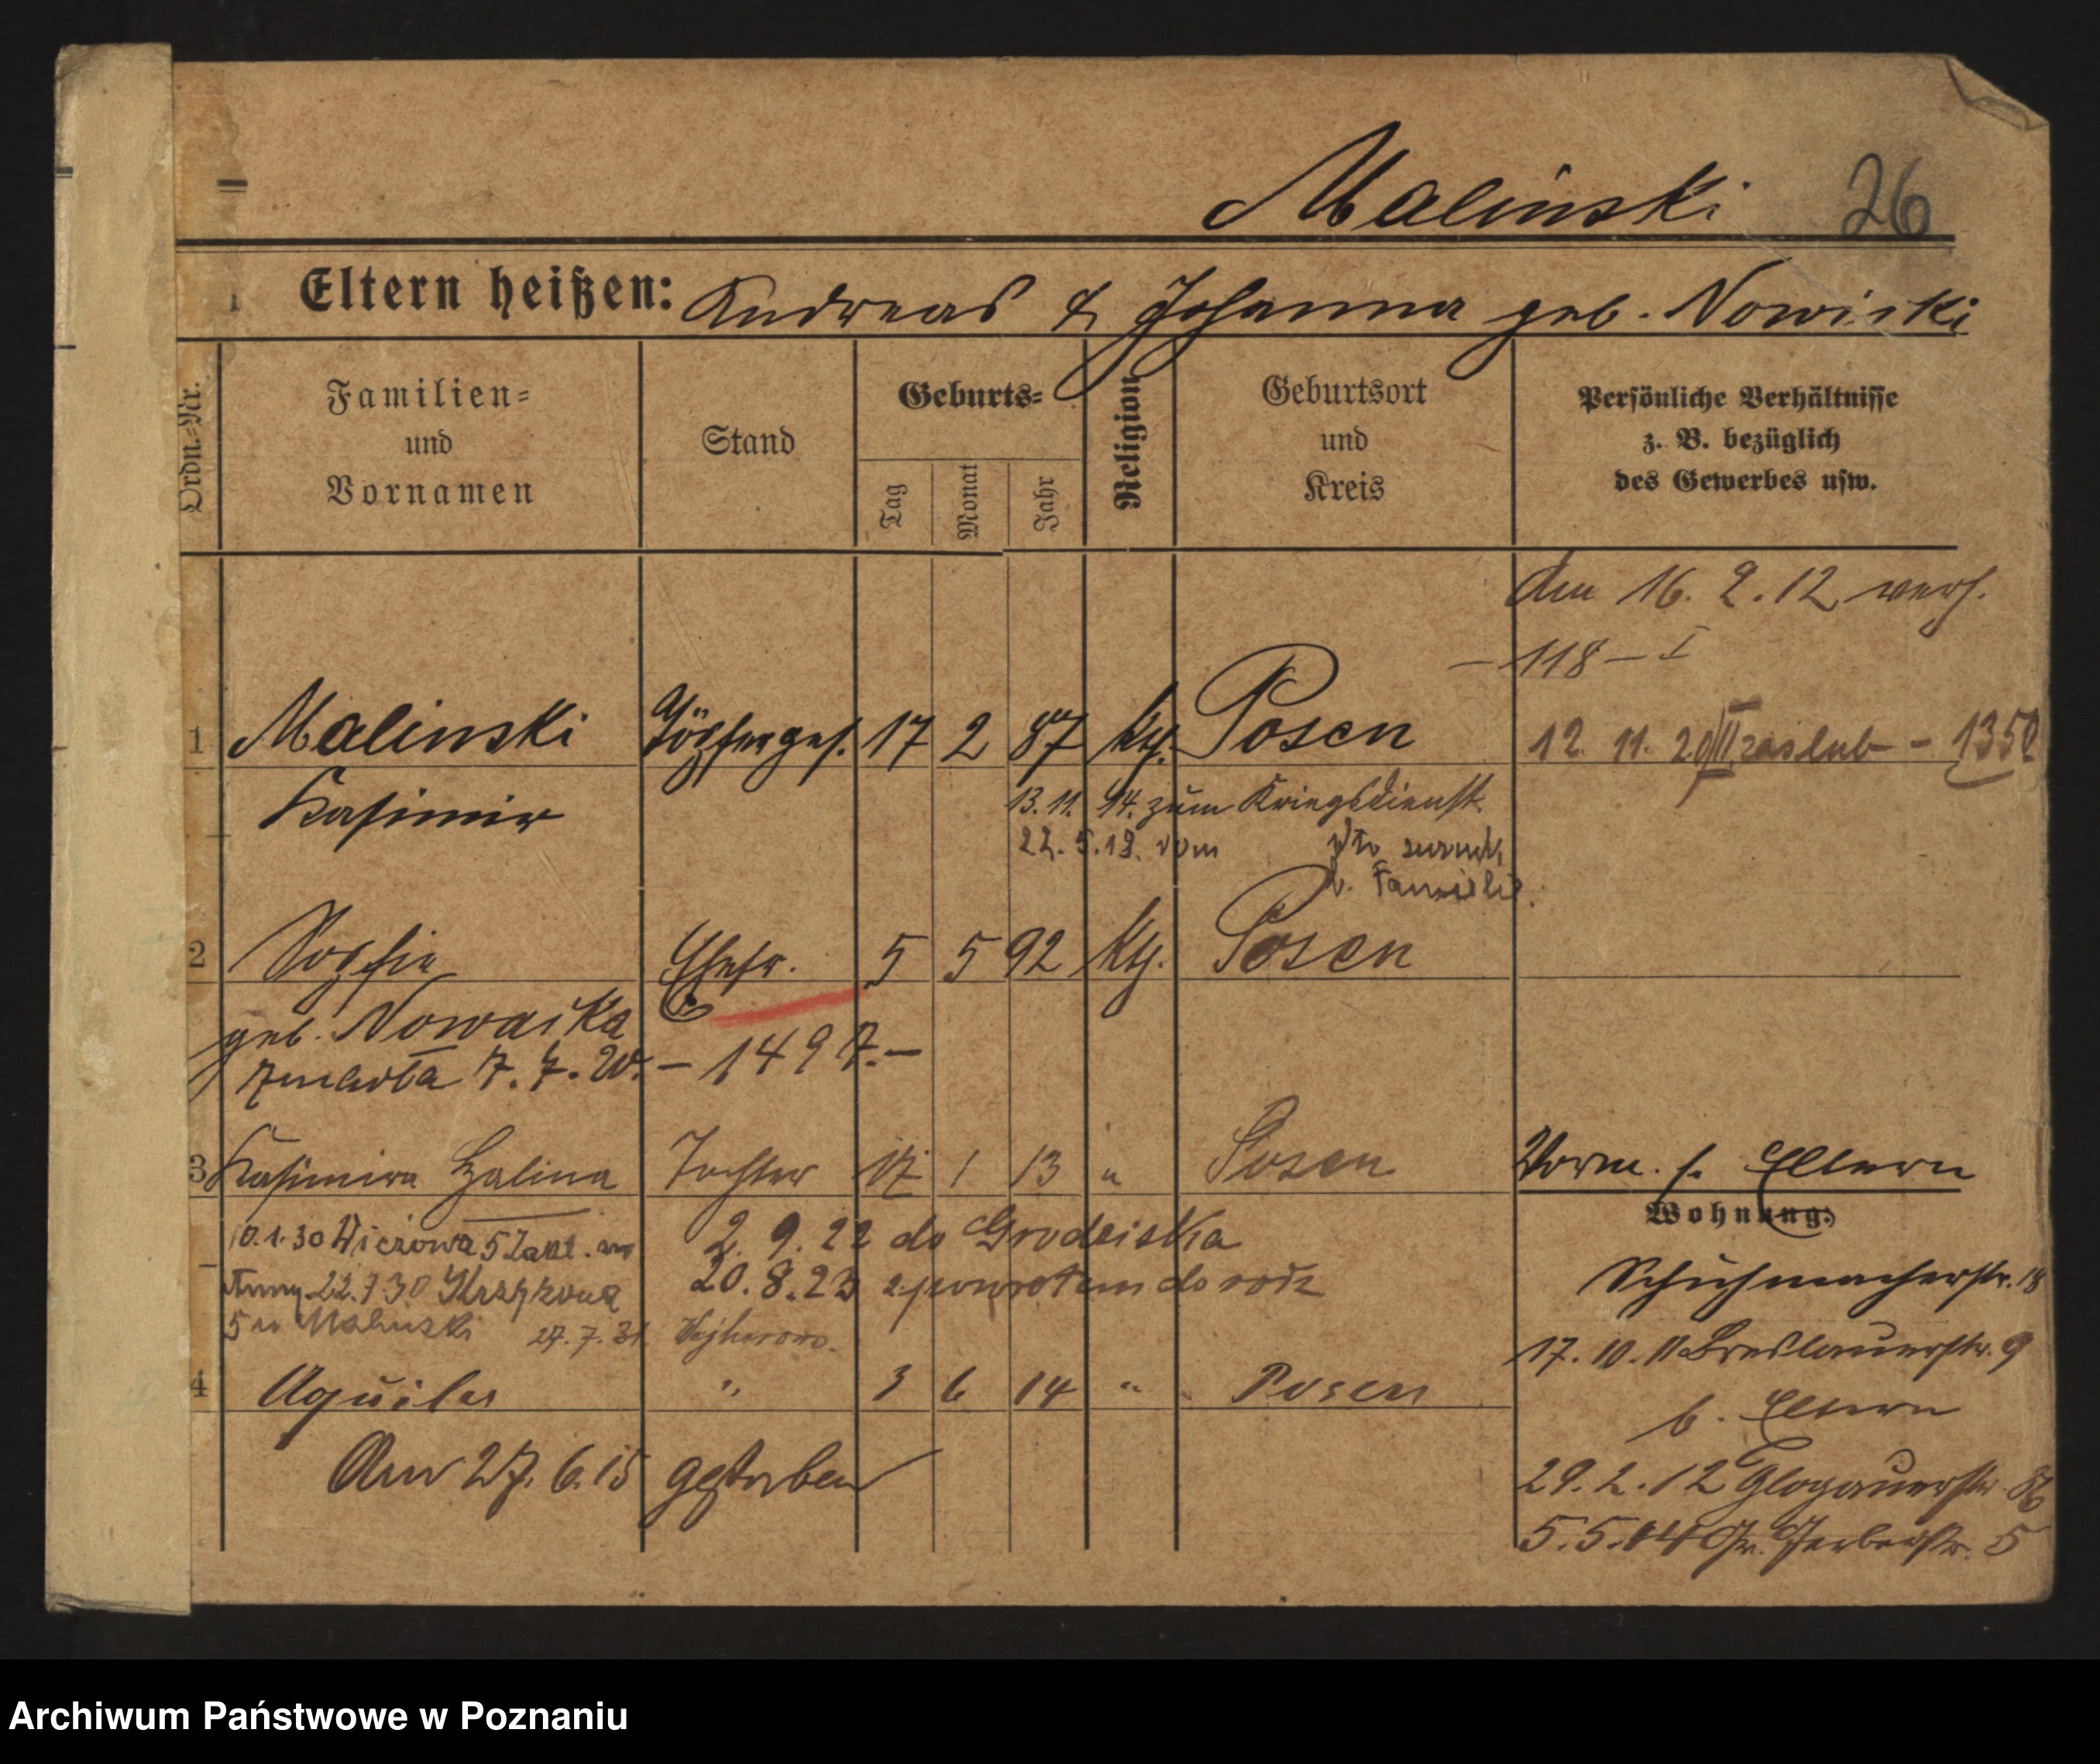 Malinski 26
Eltern heißen: Andreas & Johanna geb. Nowicki
Ordn.-Nr.
Familien-
und
Vornamen
Stand
Geburts-
Tag
Monat
Jahr
Religion
Geburtsort
und
Kreis
Persönliche Verhältnisse
z. B. bezüglich
des Gewerbes usw.
Am 16. 2. 12 verh.
- 118 - I
1 Malinski Töpferges. 17 2 87 kth. Posen
12. 11. 20 zaslub - 1350
Kasimir
13. 11. 14. zum Kriegsdienst.
22. 5. 18. vom dto zurück
z. Familie.
2 Sophie Ehefr. 5 5 92 kth. Posen
geb. Nowacka
7. 7. - 1497. -
3 Kasimira Halina Tochter 17 1 13 " Posen
Vorm. s. Eltern
Wohnung:
10.1.30 5
2. 9. 22 do Grodziska
Schuhmacherstr. 18
22.7.30
20. 8. 23 z powrotem do rodz
5 u Malinski 27. 7. 31 Wejherowo.
17. 10. 11 Breslauerstr. 9
4 " 3 6 14 " Posen
b. Eltern
Am 27. 6. 15 gestorben
29. 2. 12 Glogauerstr.
5. 5. 14 Gr. Gerberstr. 5
Archiwum Państwowe w Poznaniu